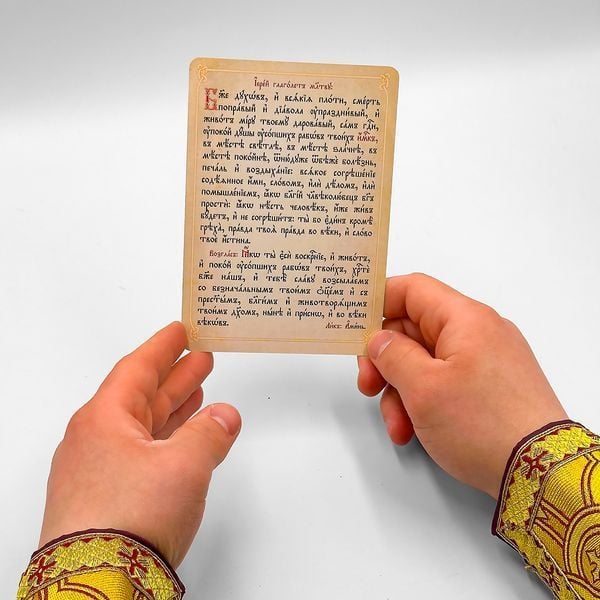 Іере́й глаго́летъ мл҃тву:
Бж҃е дꙋхѡ́въ, и҆ всѧ́кїѧ пло́ти, сме́рть
попра́вый и҆ дїа́вола ᲂу҆праздни́вый, и҆
живо́тъ мі́рꙋ твоемꙋ̀ дарова́вый, са́мъ гдⷭ҇и,
ᲂу҆поко́й дꙋ́шы ᲂу҆со́пшихъ рабѡ́въ твои́хъ и҆́м҃къ,
въ мѣ́стѣ свѣ́тлѣ, въ мѣ́стѣ ѕла́чнѣ, въ
мѣ́стѣ поко́йнѣ, ѿню́дꙋже ѿбѣжѐ болѣ́знь,
печа́ль и҆ воздыха́нїе: всѧ́кое согрѣше́нїе
содѣ́ѧнное и҆́ми, сло́вомъ, и҆лѝ дѣ́ломъ, и҆лѝ
помышле́нїемъ, ꙗ҆́кѡ бл҃гі́й чл҃вѣколю́бецъ бг҃ъ
простѝ: ꙗ҆́кѡ нѣ́сть человѣ́къ, и҆́же жи́въ
бꙋ́детъ, и҆ не согрѣши́тъ: ты́ бо є҆ди́нъ кромѣ̀
грѣха̀, пра́вда твоѧ̀ пра́вда во вѣ́ки, и҆ сло́во
твоѐ и҆́стина.
Возгла́съ: Ꙗ҆́кѡ ты̀ є҆сѝ воскрⷭ҇нїе, и҆ живо́тъ,
и҆ поко́й ᲂу҆со́пшихъ рабѡ́въ твои́хъ, хрⷭ҇тѐ
бж҃е на́шъ, и҆ тебѣ̀ сла́вꙋ возсыла́емъ
со безнача́льнымъ твои́мъ ѻ҆ц҃е́мъ и҆ съ
прест҃ы́мъ, бл҃ги́мъ и҆ животворѧ́щимъ
твои́мъ дх҃омъ, ны́нѣ и҆ при́снѡ, и҆ во вѣ́ки
вѣкѡ́въ.
Ли́къ: А҆ми́нь.